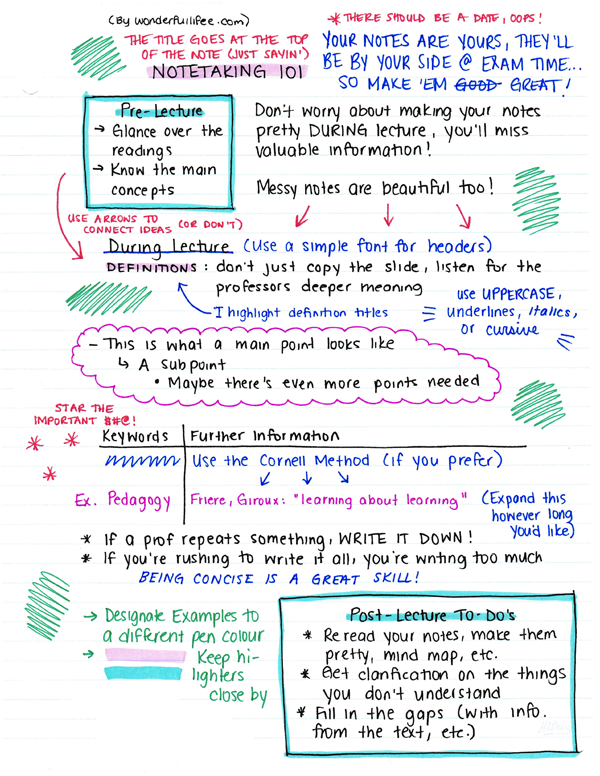 (By wonderfulifee.com)
* THERE SHOULD BE A DATE, OOPS!
THE TITLE GOES AT THE TOP
OF THE NOTE (JUST SAYIN')
NOTETAKING 101
YOUR NOTES ARE YOURS, THEY'LL
BE BY YOUR SIDE @ EXAM TIME...
SO MAKE 'EM GOOD GREAT!
Pre-Lecture
→ Glance over the
readings
→ Know the main
concepts
Don't worry about making your notes
pretty DURING lecture, you'll miss
valuable information!
Messy notes are beautiful too!
USE ARROWS TO
CONNECT IDEAS (OR DON'T)
During Lecture (Use a simple font for headers)
DEFINITIONS: don't just copy the slide, listen for the
professors deeper meaning
I highlight definition titles
use UPPERCASE,
underlines, italics,
or cursive
- This is what a main point looks like
↳ A subpoint
• Maybe there's even more points needed
STAR THE
IMPORTANT $#@!
Keywords | Further Information
Use the Cornell Method (if you prefer)
Ex. Pedagogy | Friere, Giroux: "learning about learning"
(Expand this
however long
you'd like)
* If a prof repeats something, WRITE IT DOWN!
* If you're rushing to write it all, you're writing too much
BEING CONCISE IS A GREAT SKILL!
→ Designate Examples to
a different pen colour
→ Keep hi-
lighters
close by
Post-Lecture To-Do's
* Reread your notes, make them
pretty, mind map, etc.
* Get clarification on the things
you don't understand
* Fill in the gaps (with info.
from the text, etc.)